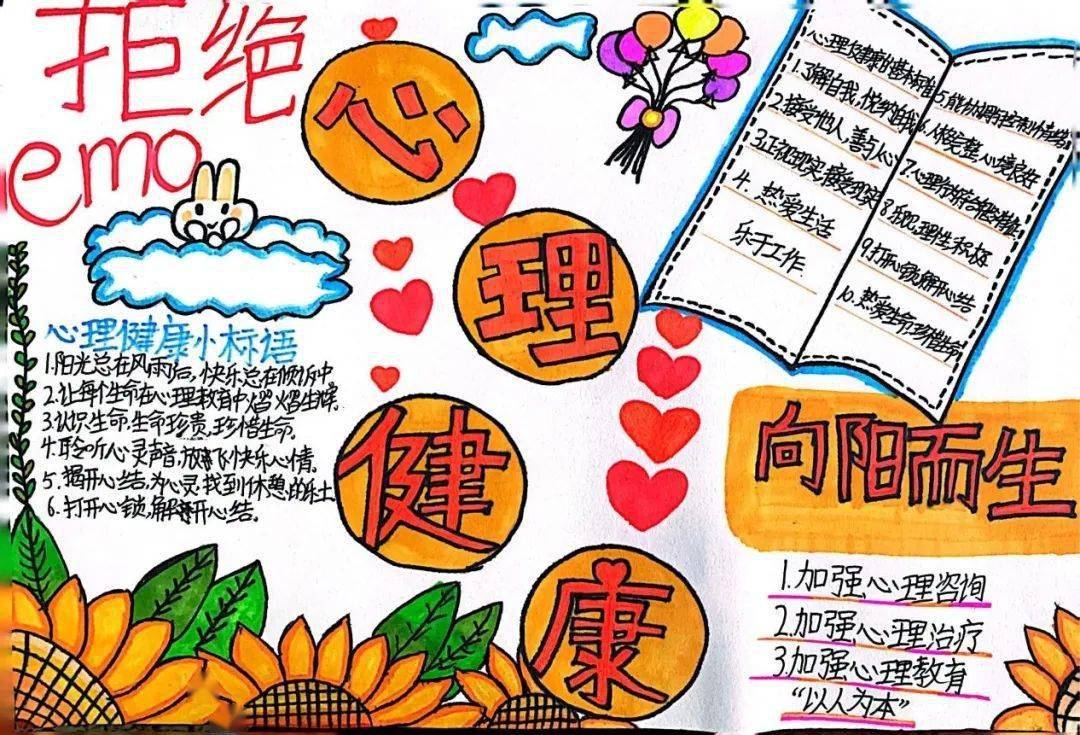 拒绝
emo
心
理
健
康
心理健康小标语
1.阳光总在风雨后,快乐总在倾诉中
2.让每个生命在心理教育中熠熠生辉.
3.认识生命,生命珍贵,珍惜生命.
4.聆听心灵声音,放飞快乐心情.
5.揭开心结,为心灵找到休憩的乐土
6.打开心锁,解开心结。
心理健康的基本标准
1.了解自我,悦纳自我
2.接受他人,善与人
3.正视现实,接受现实
4.热爱生活
乐于工作.
5.能协调与控制情绪
6.人格完整,心境良好
7.心理行为符合
8.乐观理性积极
9.打开心锁,解开心结
10.热爱生命,珍惜生命
向阳而生
1.加强心理咨询
2.加强心理治疗
3.加强心理教育
“以人为本”